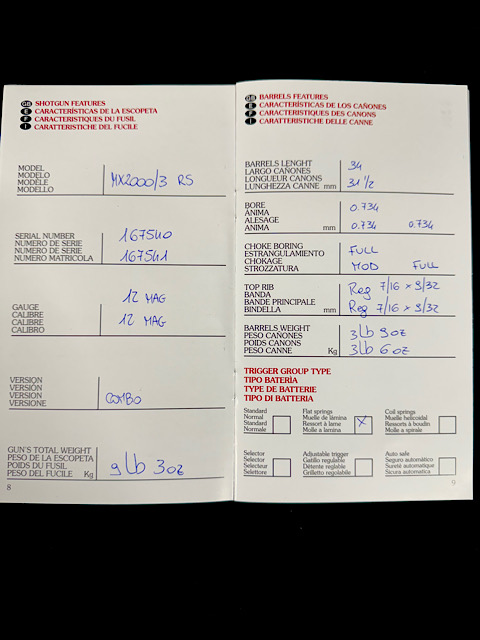 GB SHOTGUN FEATURES
E CARACTERÍSTICAS DE LA ESCOPETA
F CARACTERISTIQUES DU FUSIL
I CARATTERISTICHE DEL FUCILE
MODEL
MODELO
MODÈLE
MODELLO
MX2000/3 RS
SERIAL NUMBER
NUMERO DE SERIE
NUMERO DE SERIE
NUMERO MATRICOLA
167540
167541
GAUGE
CALIBRE
CALIBRE
CALIBRO
12 MAG
12 MAG
VERSION
VERSIÓN
VERSION
VERSIONE
COMBO
GUN'S TOTAL WEIGHT
PESO DE LA ESCOPETA
POIDS DU FUSIL
PESO DEL FUCILE Kg
9 lb 3 oz
8
GB BARRELS FEATURES
E CARACTERÍSTICAS DE LOS CAÑONES
F CARACTERISTIQUES DES CANONS
I CARATTERISTICHE DELLE CANNE
BARRELS LENGHT
LARGO CAÑONES
LONGUEUR CANONS
LUNGHEZZA CANNE mm
34
31 1/2
BORE
ANIMA
ALESAGE
ANIMA mm
0.734
0.734 0.734
CHOKE BORING
ESTRANGULAMIENTO
CHOKAGE
STROZZATURA
FULL
MOD FULL
TOP RIB
BANDA
BANDE PRINCIPALE
BINDELLA mm
Reg 7/16 x 9/32
Reg 7/16 x 9/32
BARRELS WEIGHT
PESO CAÑONES
POIDS CANONS
PESO CANNE Kg
3 lb 9 oz
3 lb 6 oz
TRIGGER GROUP TYPE
TIPO BATERÍA
TYPE DE BATTERIE
TIPO DI BATTERIA
Standard
Normal
Standard
Normale
Flat springs
Muelle de làmina
Ressort à lame
Molle a lamina
X
Coil springs
Muelle helicoidal
Ressorts à boudin
Molle a spirale
Selector
Selector
Selecteur
Selettore
Adjustable trigger
Gatillo regulable
Détente reglable
Grilletto regolabile
Auto safe
Seguro automático
Sureté automatique
Sicura automatica
9